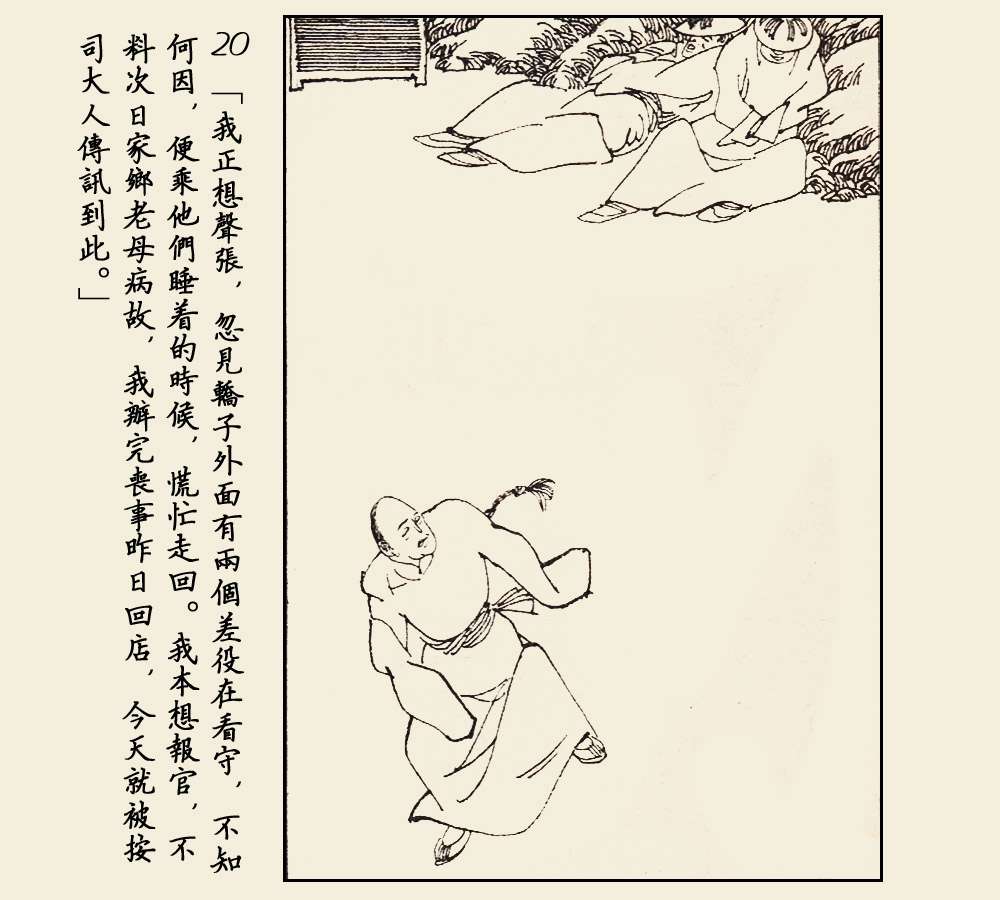 20
「我正想聲張，忽見轎子外面有兩個差役在看守，不知
何因，便乘他們睡着的時候，慌忙走回。我本想報官，不
料次日家鄉老母病故，我辦完喪事昨日回店，今天就被按
司大人傳訊到此。」